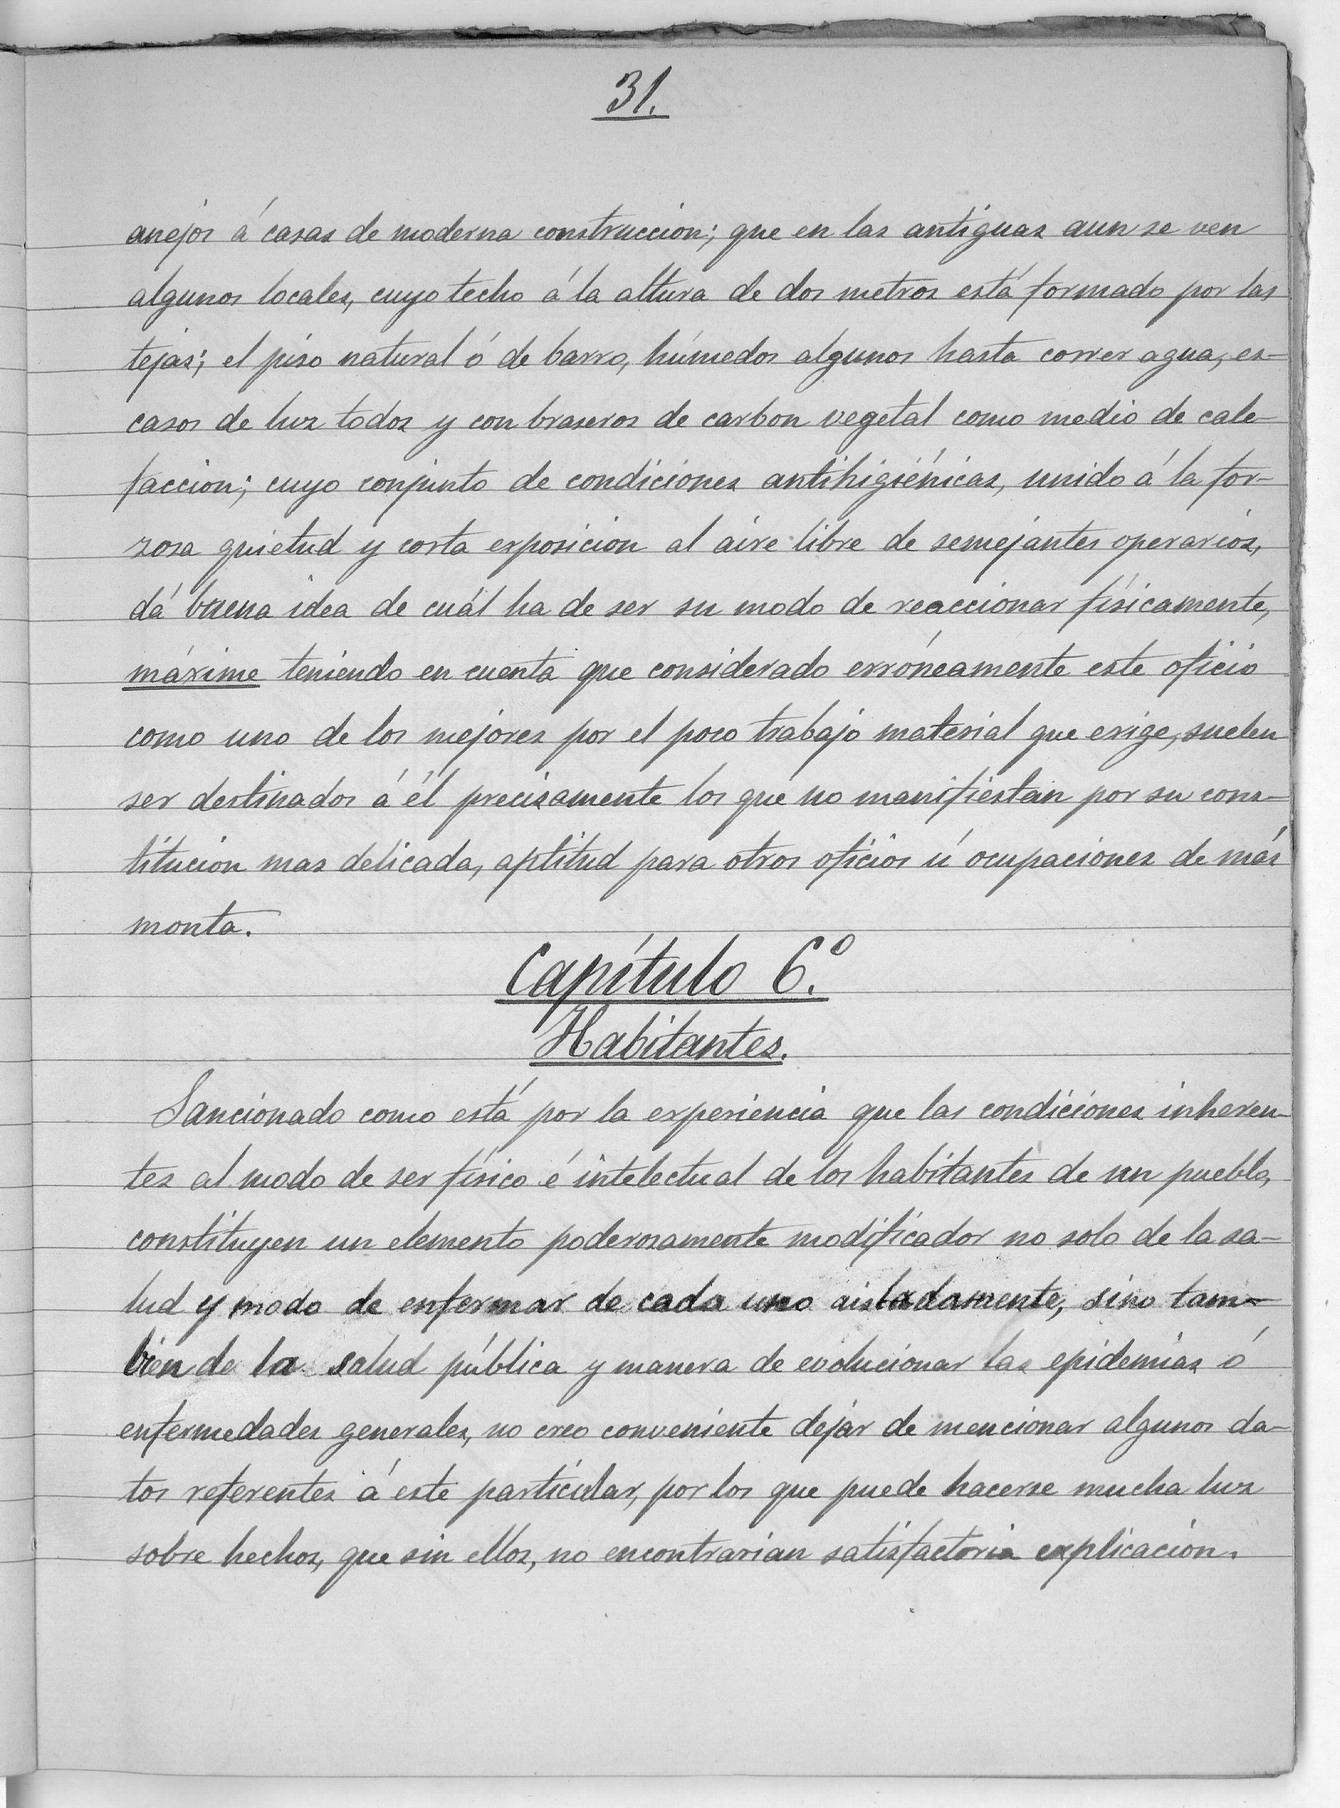 31.
anejos á casas de moderna construccion; que en las antiguas aun se ven
algunos locales, cuyo techo á la altura de dos metros está formado por las
tejas; el piso natural ó de barro, húmedos algunos hasta correr agua, es-
casos de luz todos y con braseros de carbon vegetal como medio de cale-
faccion; cuyo conjunto de condiciones antihigiénicas, unido á la for-
zosa quietud y corta exposicion al aire libre de semejantes operarios,
dá buena idea de cuál ha de ser su modo de reaccionar físicamente,
máxime teniendo en cuenta que considerado erróneamente este oficio
como uno de los mejores por el poco trabajo material que exige, suelen
ser destinados á él precisamente los que no manifiestan por su cons-
titucion mas delicada, aptitud para otros oficios ú ocupaciones de más
monta.
Capítulo 6.º
Habitantes.
Sancionado como está por la experiencia que las condiciones inheren-
tes al modo de ser físico é intelectual de los habitantes de un pueblo,
constituyen un elemento poderosamente modificador no solo de la sa-
lud y modo de enfermar de cada uno aisladamente, sino tam-
bien de la salud pública y manera de evolucionar las epidemias ó
enfermedades generales, no creo conveniente dejar de mencionar algunos da-
tos referentes á este particular, por los que puede hacerse mucha luz
sobre hechos, que sin ellos, no encontrarian satisfactoria explicacion.